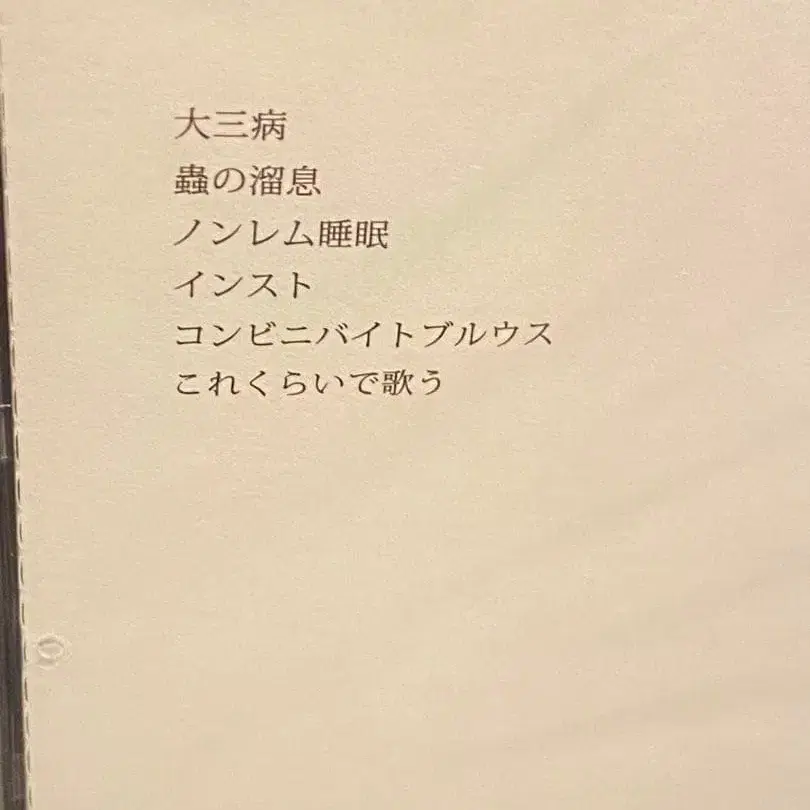 大三病
蟲の溜息
ノンレム睡眠
インスト
コンビニバイトブルウス
これくらいで歌う